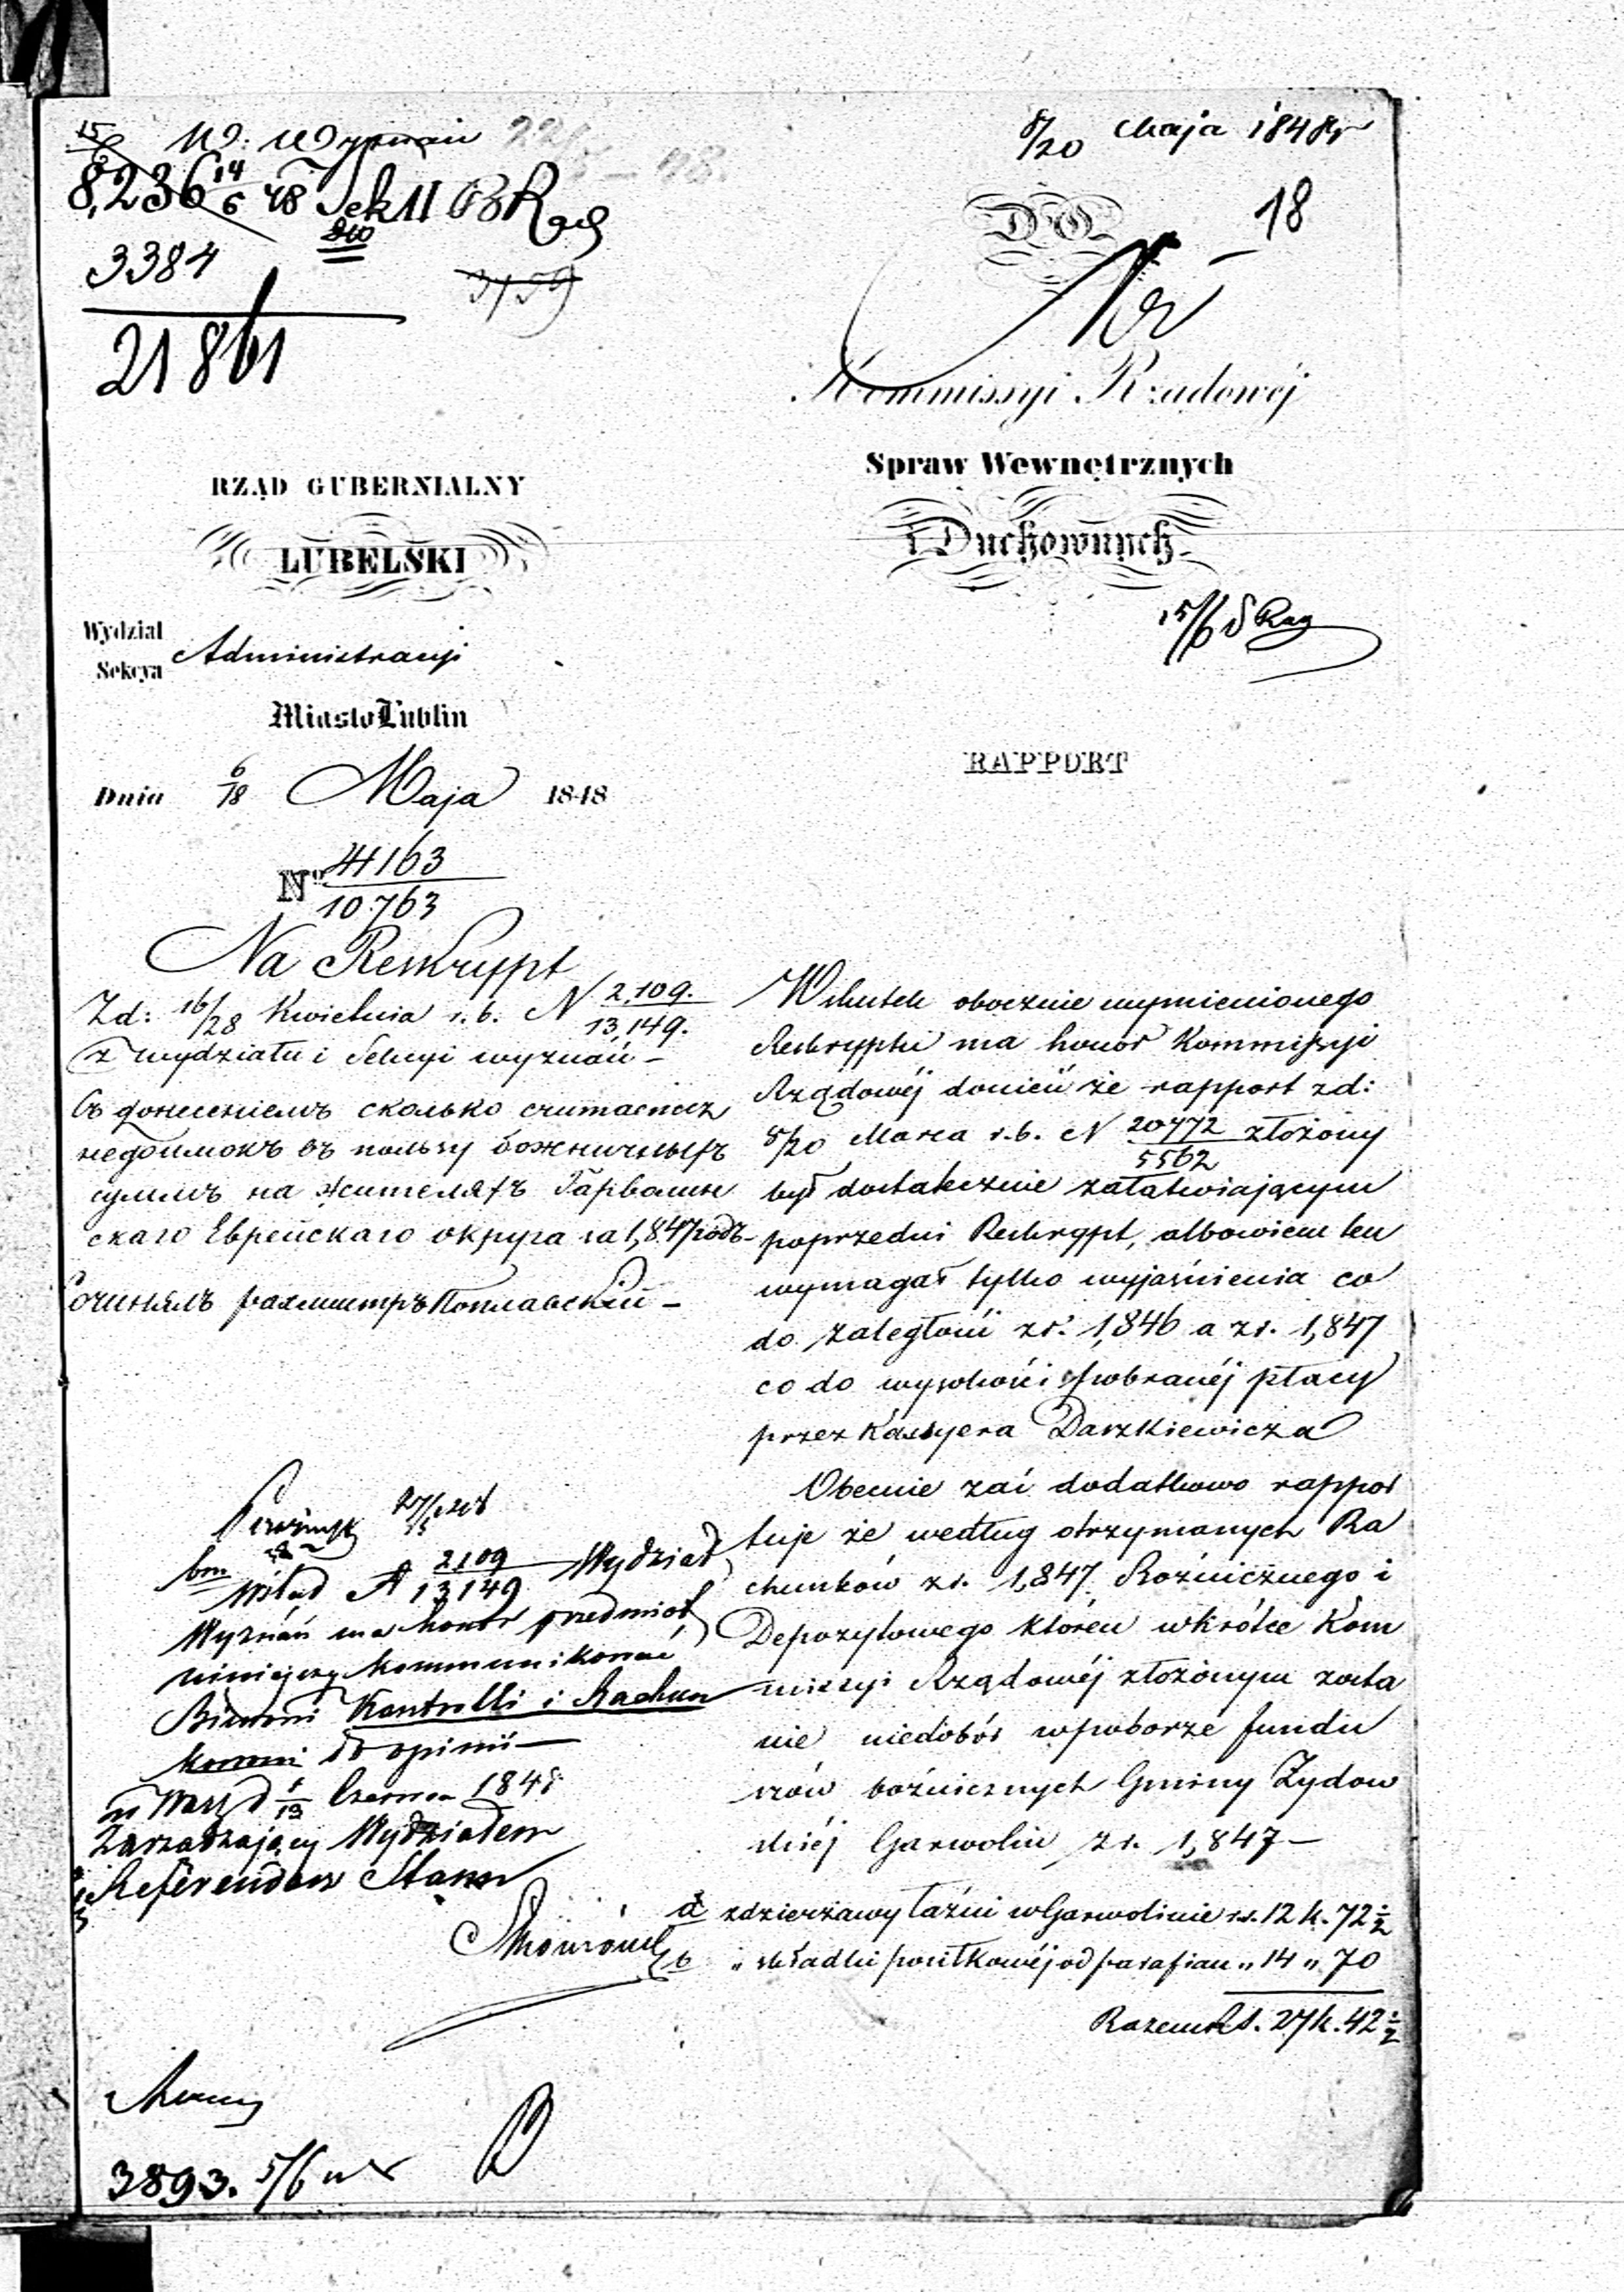 W. Wyznań
8,236 14/6 48 Sek II
3384
21861
8/20 Maja 1848 r
18
DO
Kommissyi Rządowéj
Spraw Wewnętrznych
i Duchownych
RZĄD GUBERNIALNY
LUBELSKI
Wydział
Sekcya
Administracyi
Miasto Lublin
Dnia 6/18 Maja 1848
Nº 41163/10763
RAPPORT
Na Reskrypt
Zd: 16/28 Kwietnia r. b. N 2,109./13,149.
z wydziału i Sekcyi wyznań –
Съ донесеніемъ сколько считается
недоимокъ въ пользу божничныхъ
суммъ на жителяхъ Гарволин
скаго Еврейскаго округа за 1,847 годъ
Сочинялъ рахмистръ Поплавскій –
Wskutek obocznie wymienionego
Reskryptu ma honor Kommissyi
Rządowéj donieść że rapport zd:
8/20 Marca r. b. N 20472/5562 złożony
był dostatecznie załatwiającym
poprzedni Reskrypt, albowiem ten
wymagał tylko wyjaśnienia co
do zaległości z r. 1,846 a z r. 1,847
co do wysokości pobranéj płacy
przez Kassyera Daszkiewicza
Obecnie zaś dodatkowo rappor
tuje że według otrzymanych Ra
chunków z r. 1,847 Bożnicznego i
Depozytowego które w wkrótce Kom
missyi Rządowéj złożonym zosta
nie niedobór w poborze fundu
szów bożnicznych Gminy Żydow
skiéj Garwolin z r. 1,847 –
a z dzierżawy łaźni w Garwolinie r.s. 12 k. 72 ½
b „ składki posiłkowéj od parafian „ 14 „ 70
Razem RS. 27 k. 42 ½
2109/13149 Wydział
Wyznań ma honor przedmiot
niniejszy kommunikować
Biurowi Kontrolli i Rachun
kowemi do opinii –
w Warsz d 1/13 Czerwca 1848
Zarządzający Wydziałem
Referendarz Stanu
3893. 5/6